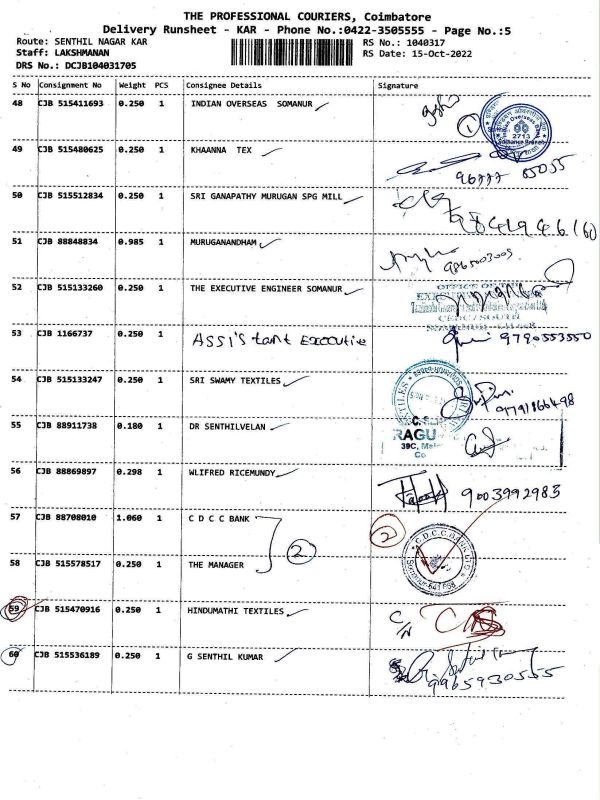 THE PROFESSIONAL COURIERS, Coimbatore
Delivery Runsheet - KAR - Phone No.:0422-3505555 - Page No.:5
Route: SENTHIL NAGAR KAR RS No.: 1040317
Staff: LAKSHMANAN RS Date: 15-Oct-2022
DRS No.: DCJB104031705
S No Consignment No Weight PCS Consignee Details Signature
48 CJB 515411693 0.250 1 INDIAN OVERSEAS SOMANUR 1
2713
Somanur Branch
49 CJB 515480625 0.250 1 KHAANNA TEX
50 CJB 515512834 0.250 1 SRI GANAPATHY MURUGAN SPG MILL
51 CJB 88848834 0.985 1 MURUGANANDHAM
52 CJB 515133260 0.250 1 THE EXECUTIVE ENGINEER SOMANUR
OFFICE OF THE
53 CJB 1166737 0.250 1 ASSI'S tant EXECUTIVE 9790553550
54 CJB 515133247 0.250 1 SRI SWAMY TEXTILES
55 CJB 88911738 0.180 1 DR SENTHILVELAN
RAGU
56 CJB 88869897 0.298 1 WLIFRED RICEMUNDY 9003992983
57 CJB 88708010 1.060 1 C D C C BANK 2 2
C.D.C.C. BANK LTD
58 CJB 515578517 0.250 1 THE MANAGER
59 CJB 515470916 0.250 1 HINDUMATHI TEXTILES C/N
60 CJB 515536189 0.250 1 G SENTHIL KUMAR
9965930555